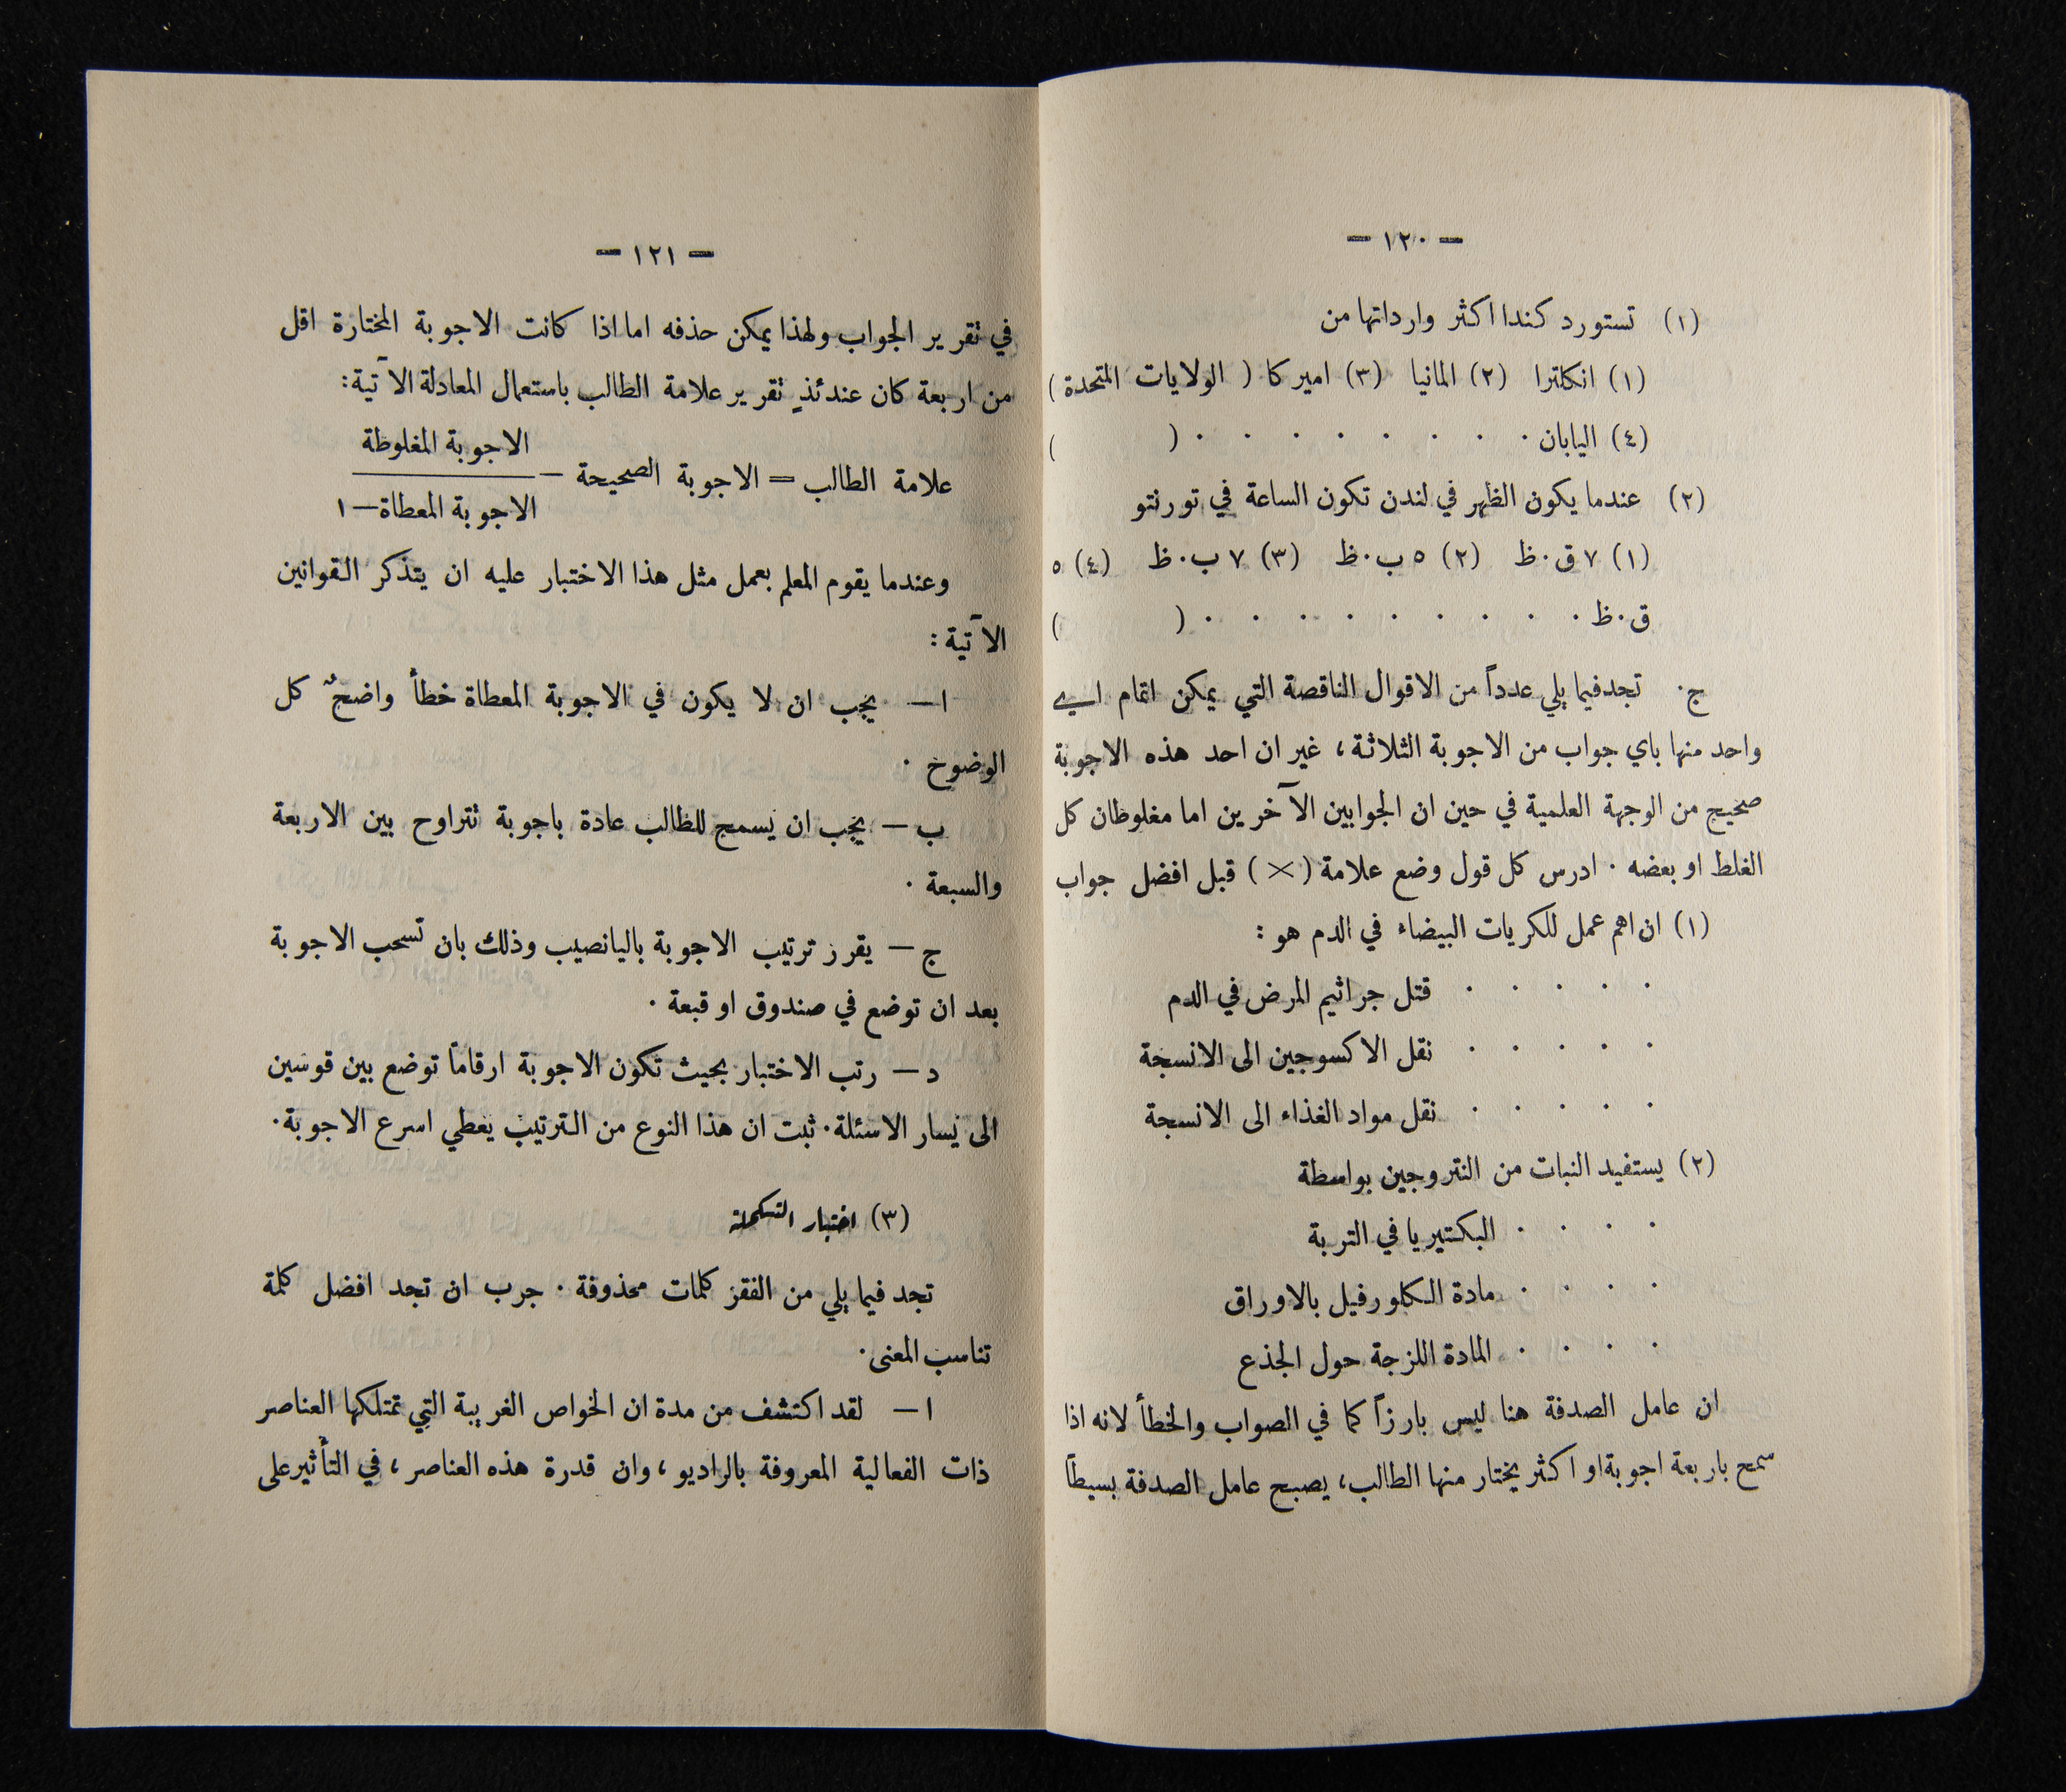 — ١٢٠ —
(١) تستورد كندا اكثر وارداتها من
(١) انكلترا (٢) المانيا (٣) اميركا ( الولايات المتحدة )
(٤) اليابان . . . . . . . . ( )
(٢) عندما يكون الظهر في لندن تكون الساعة في تورنتو
(١) ٧ ق.ظ (٢) ٥ ب.ظ (٣) ٧ ب.ظ (٤) ٥
ق.ظ . . . . . . . . . ( )
ج. تجد فيما يلي عدداً من الاقوال الناقصة التي يمكن اتمام اي
واحد منها باي جواب من الاجوبة الثلاثة ، غير ان احد هذه الاجوبة
صحيح من الوجهة العلمية في حين ان الجوابين الآخرين اما مغلوطان كل
الغلط او بعضه . ادرس كل قول وضع علامة (×) قبل افضل جواب
(١) ان اهم عمل للكريات البيضاء في الدم هو :
. . . . . قتل جراثيم المرض في الدم
. . . . . نقل الاكسوجين الى الانسجة
. . . . . نقل مواد الغذاء الى الانسجة
(٢) يستفيد النبات من النتروجين بواسطة
. . . . البكتيريا في التربة
. . . . مادة الكلورفيل بالاوراق
. . . . المادة اللزجة حول الجذع
ان عامل الصدفة هنا ليس بارزاً كما في الصواب والخطأ لانه اذا
سمح باربعة اجوبة او اكثر يختار منها الطالب ، يصبح عامل الصدفة بسيطاً
— ١٢١ —
في تقرير الجواب ولهذا يمكن حذفه اما اذا كانت الاجوبة المختارة اقل
من اربعة كان عندئذٍ تقرير علامة الطالب باستعمال المعادلة الآتية :
الاجوبة المغلوطة
علامة الطالب = الاجوبة الصحيحة —
الاجوبة المعطاة — ١
وعندما يقوم المعلم بعمل مثل هذا الاختبار عليه ان يتذكر القوانين
الآتية :
ا — يجب ان لا يكون في الاجوبة المعطاة خطأ واضحٌ كل
الوضوح .
ب — يجب ان يسمح للطالب عادة باجوبة تتراوح بين الاربعة
والسبعة .
ج — يقرر ترتيب الاجوبة باليانصيب وذلك بان تسحب الاجوبة
بعد ان توضع في صندوق او قبعة .
د — رتب الاختبار بحيث تكون الاجوبة ارقاماً توضع بين قوسين
الى يسار الاسئلة . ثبت ان هذا النوع من الترتيب يعطي اسرع الاجوبة .
(٣) اختبار التكملة
تجد فيما يلي من الفقر كلمات محذوفة . جرب ان تجد افضل كلمة
تناسب المعنى .
ا — لقد اكتشف من مدة ان الخواص الغريبة التي تمتلكها العناصر
ذات الفعالية المعروفة بالراديو ، وان قدرة هذه العناصر ، في التأثير على